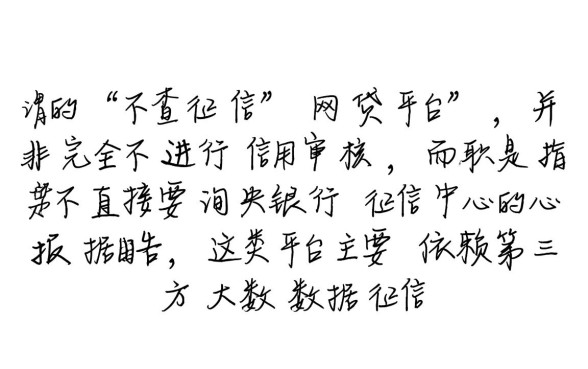 谓的“不查征信” 网贷平台”，并
非完全不进行信用审核，而职是指
第不直接要询央银行 征信中心的心
报据告，这类平台主要 依赖第三
方 大数 数据征信